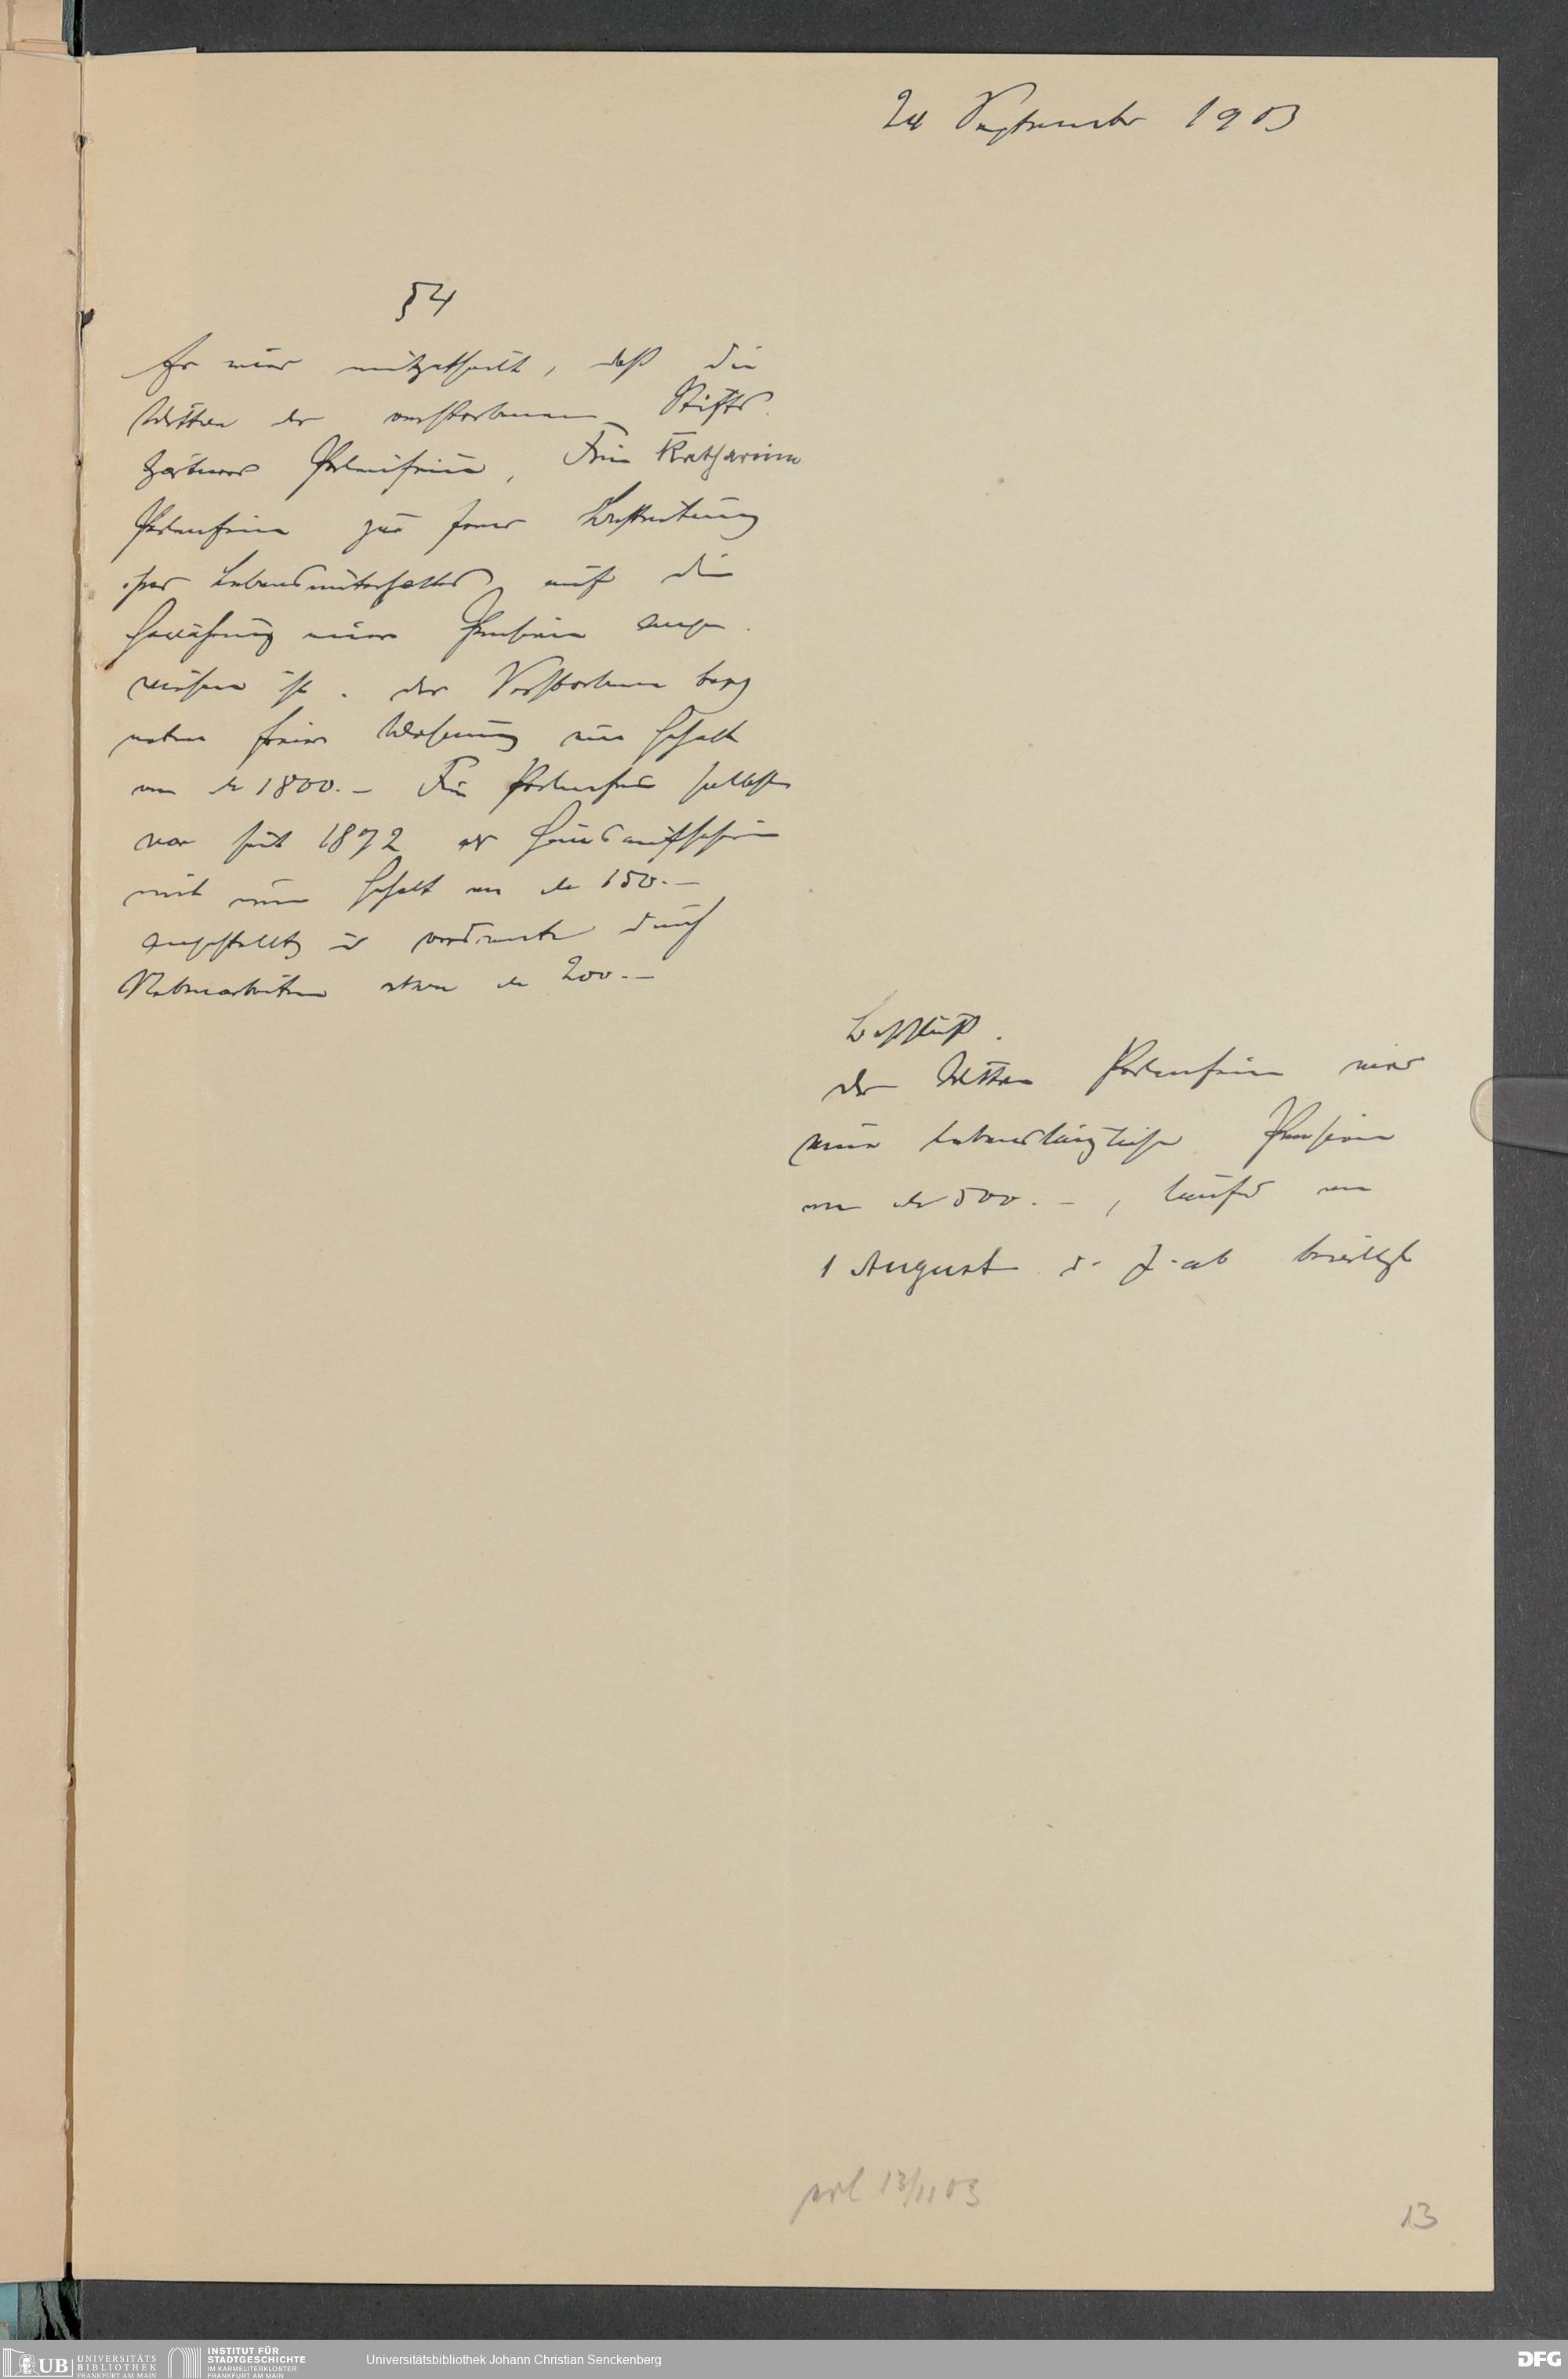 24 September 1903
§ 4
Es wird mitgetheilt, daß die
Wittwe des verstorbenen Stifts-
gärtners, Frau Katharina
zur Bestreitung
ihres Lebensunterhaltes auf die
Gewährung einer Pension ange-
wiesen ist. Der Verstorbene bezog
neben freier Wohnung ein Gehalt
von M 1800.— Frau selbst
war seit 1872 als Hausaufseherin
mit einem Gehalt von M 150.—
angestellt u verdiente durch
Nebenarbeiten etwa M 200.—
Beschluß.
Der Wittwe wird
eine lebenslängliche Pension
von M 500.—, laufend vom
1 August d. J. ab bewilligt
erl 13/11 03
13
UB UNIVERSITÄTS
BIBLIOTHEK
FRANKFURT AM MAIN
INSTITUT FÜR
STADTGESCHICHTE
IM KARMELITERKLOSTER
FRANKFURT AM MAIN
Universitätsbibliothek Johann Christian Senckenberg
DFG